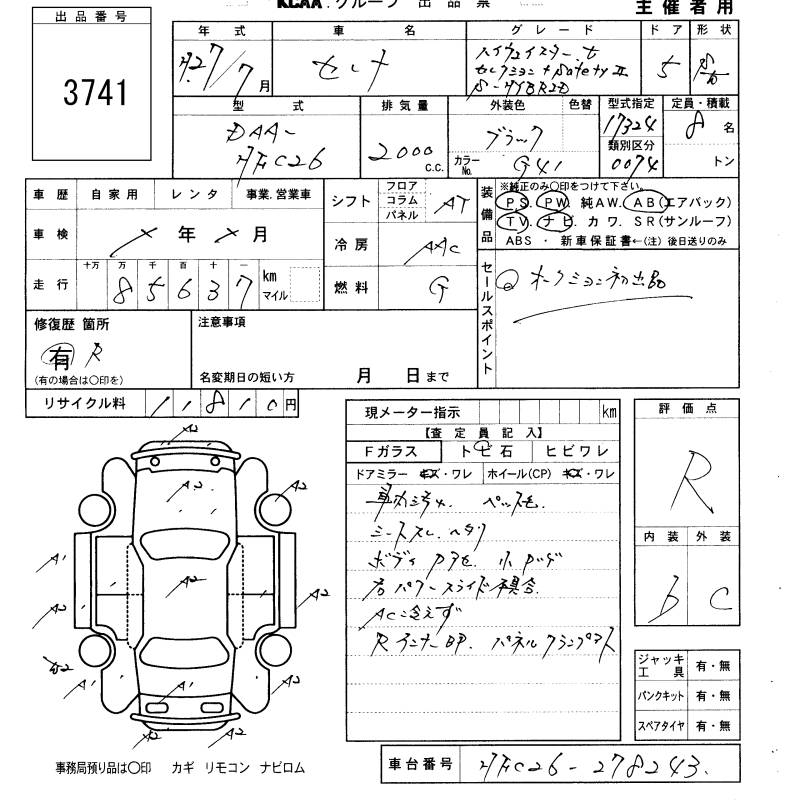 KCAA.グループ 出品票
主催者用
出品番号
3741
年式 車名 グレード ドア 形状
H27/7月 セレナ ハイウェイスター セレクション+Safety II S-HYBRID 5
型式 排気量 外装色 色替 型式指定 定員・積載
DAA-HFC26 2000 C.C. ブラック 17324 8名
カラーNo. G41 類別区分 0074 トン
車歴 自家用 レンタ 事業.営業車
シフト フロア コラム パネル AT
装備品 ※純正のみ〇印をつけて下さい。
PS. PW. 純AW. AB(エアバック)
TV. ナビ. カワ. SR(サンルーフ)
ABS ・ 新車保証書←(注) 後日送りのみ
車検 年 月
冷房 AAC
走行 十万 万 千 百 十 一 km マイル
85637
燃料 G
セールスポイント
オークション初出品
修復歴 箇所
有 R
(有の場合は〇印を)
注意事項
名変期日の短い方 月 日まで
リサイクル料 11810円
現メーター指示 km
【査定員記入】
Fガラス トビ石 ヒビワレ
ドアミラー キズ・ワレ ホイール(CP) キズ・ワレ
シートスレ.ヘタリ
右パワースライド不具合.
AC冷えず
RインナーBP. パネルクランプ
評価点
R
内装 外装
b C
ジャッキ工具 有・無
パンクキット 有・無
スペアタイヤ 有・無
A2
A2 A2 A2
A1 A2
A2 A2
A2
A1 A1 A2
A2 A2
事務局預り品は〇印 カギ リモコン ナビロム
車台番号 HFC26-278243.